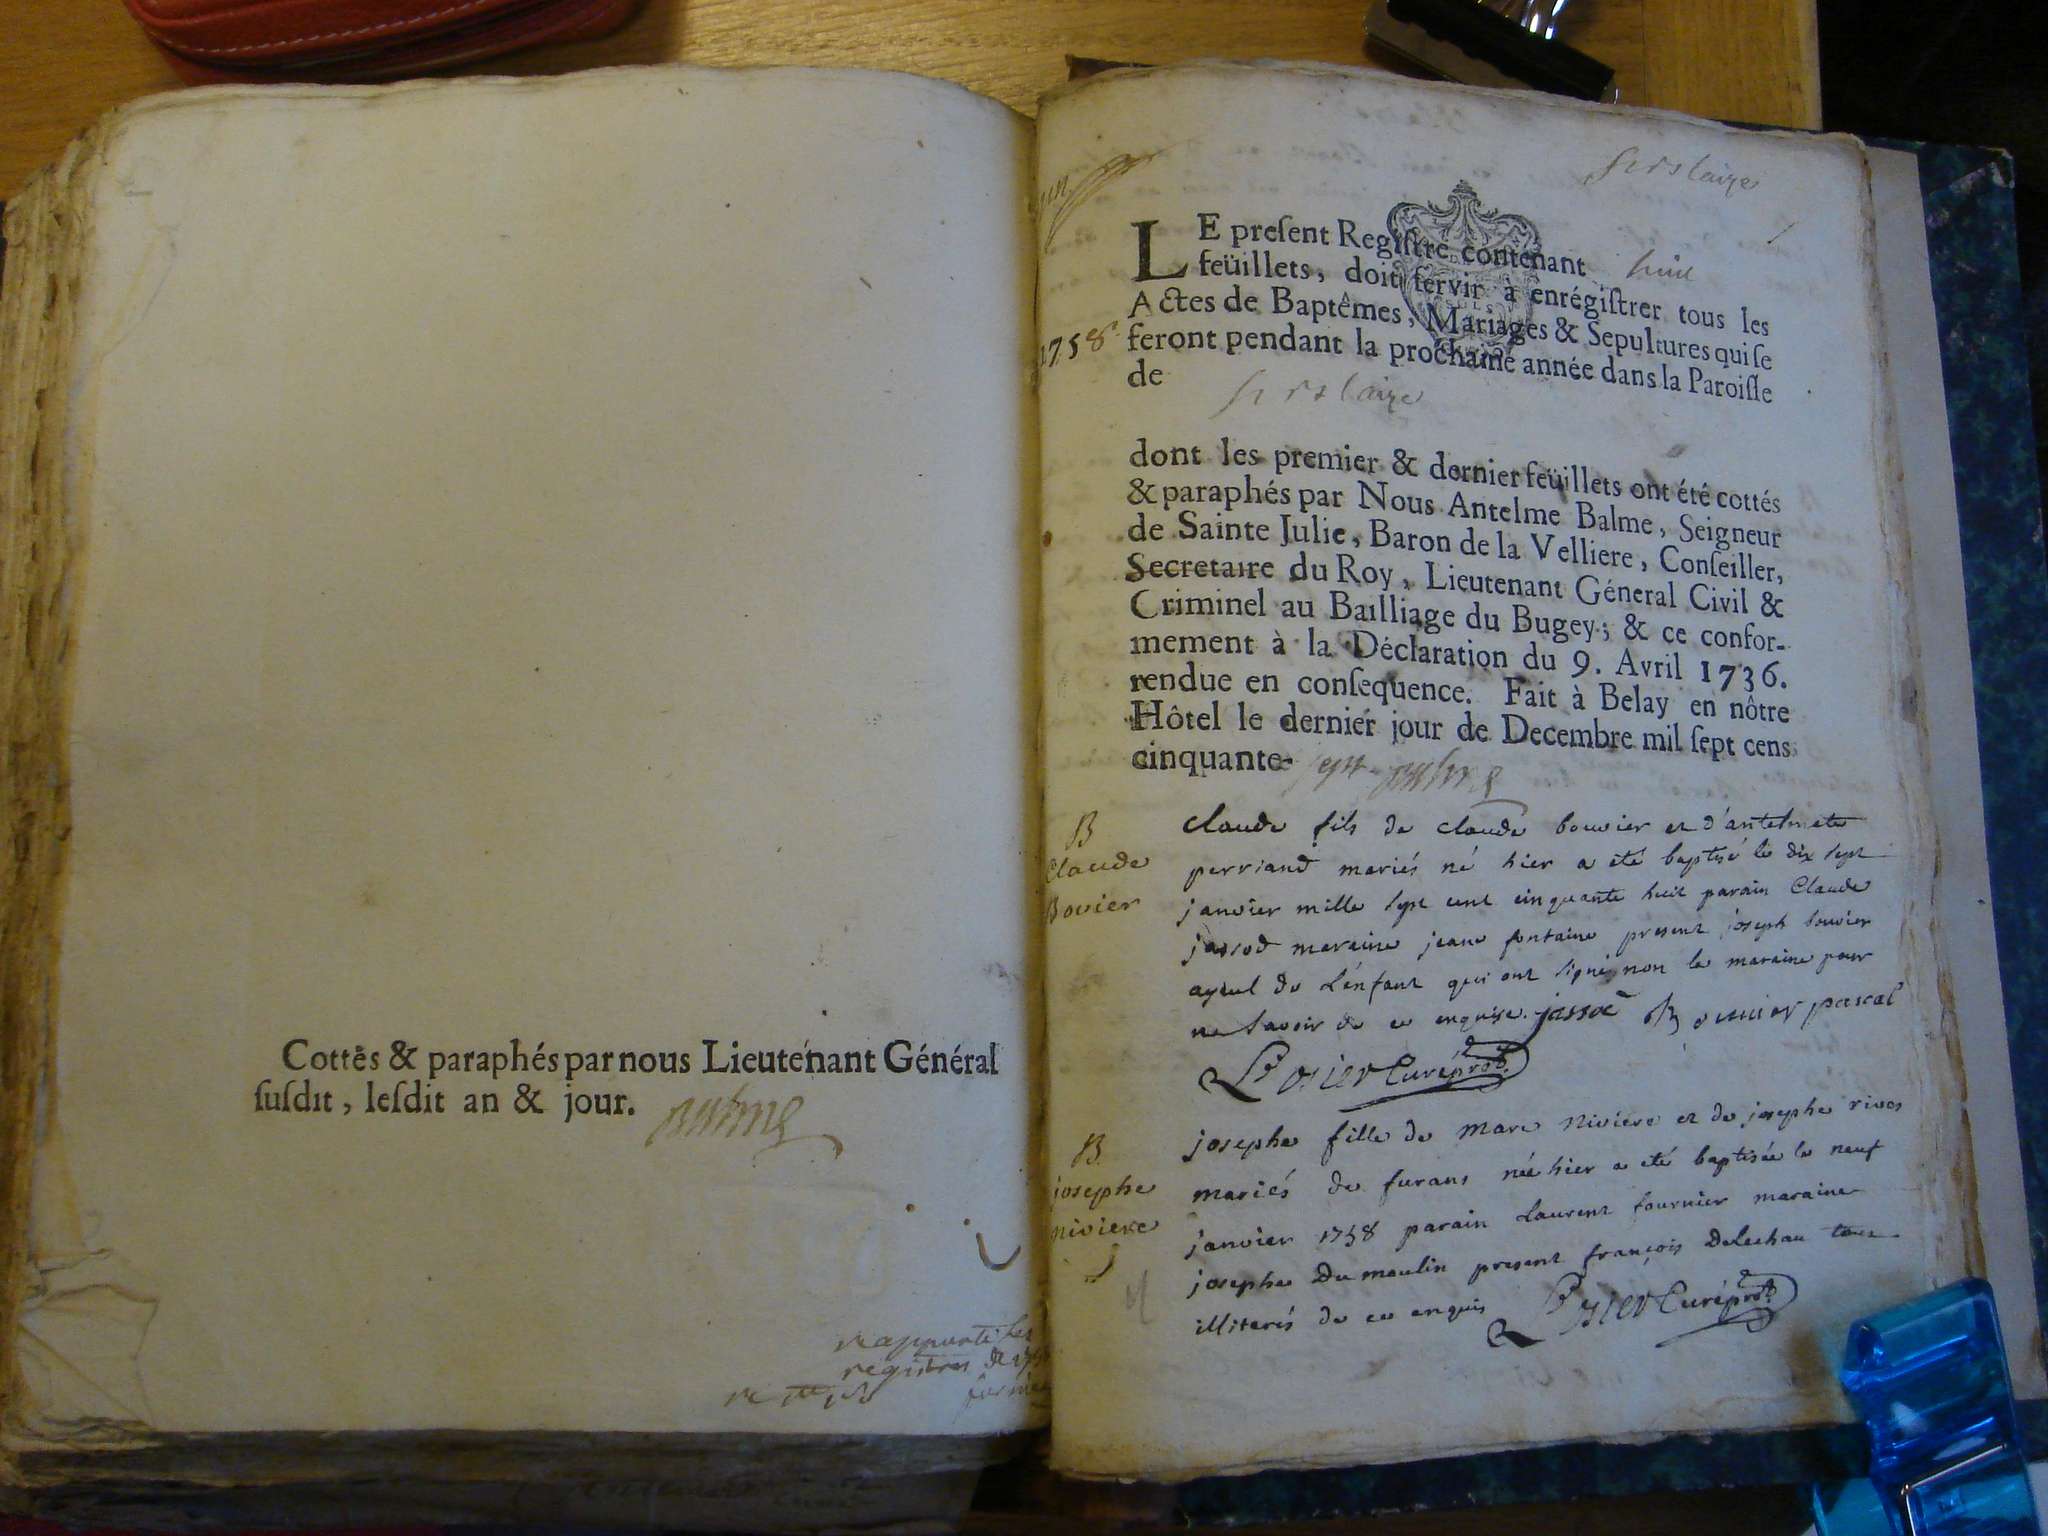 Cottés & paraphés par nous Lieutenant Général
ſuſdit, leſdit an & jour.
balme
registres de
1758
LE preſent Regiſtre contenant huit
feüillets, doit ſervir à enrégiſtrer tous les
Actes de Baptêmes, Mariages & Sepultures qui ſe
feront pendant la prochaine année dans la Paroiſſe
de
dont les premier & dernier feüillets ont été cottés
& paraphés par Nous Antelme Balme, Seigneur
de Sainte Julie, Baron de la Velliere, Conſeiller,
Secretaire du Roy, Lieutenant Géneral Civil &
Criminel au Bailliage du Bugey; & ce confor-
mement à la Déclaration du 9. Avril 1736.
rendue en conſequence. Fait à Belay en nôtre
Hôtel le dernier jour de Decembre mil ſept cens
cinquante-sept balme
B
Claude
Bovier
claude fils de claude bouvier et d'antelmete
perriand mariés né hier a eté baptisé le dix sept
janvier mille sept cent cinquante huit parain Claude
jassod maraine jeane fontaine present joseph bouvier
ayeul de l'énfant qui ont signé non la maraine pour
ne savoir de ce enquise. jassod Bouvier pascal
Curé
B
josephe
niviere
josephe fille de marc niviere et de josephe rives
mariés de furans née hier a eté baptisée le neuf
janvier 1758 parain Laurent fournier maraine
josephe Dumoulin present françois Delechau tous
illiterés de ce enquis Curé